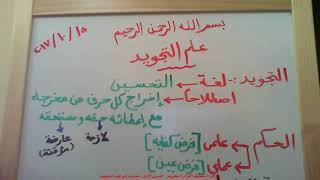 بسم الله الرحمن الرحيم
علم التجويد
التجويد :- لغة التحسين
اصطلاحا إخراج كل حرف من مخرجه
مع إعطائه حقه ومستحقه
لازمة عارضة
(مزينة)
الحكم علمي [فرض كفاية]
عملي [فرض عين]